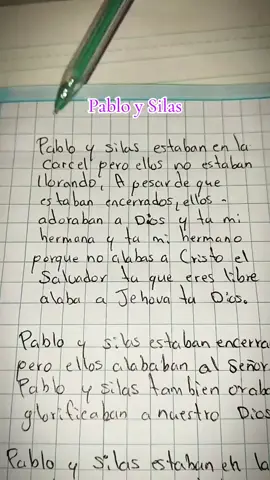 Pablo y Silas
Pablo y silas estaban en la
carcel pero ellos no estaban
llorando, A pesar de que
estaban encerrados, ellos -
adoraban a Dios y tu mi
hermana y tu mi hermano
porque no alabas a Cristo el
Salvador tu que eres libre
alaba a Jehova tu Dios.
Pablo y silas estaban encerra
pero ellos alababan al Señor
Pablo y silas tambien oraba
glorificaban a nuestro Dios
Pablo y silas estaban en la